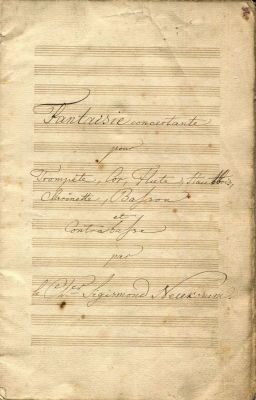 Fantaisie concertante
pour
Trompète, Cor, Flute, Hautbois,
Clarinette, Basson
et
Contrabasse
par
le Ch.er Sigismond Neukomm.